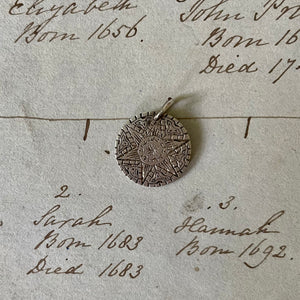 Elizabeth
Born 1656.
John
Born 16
Died 17
2.
Sarah
Born 1683
Died 1683
.3.
Hannah
Born 1692.